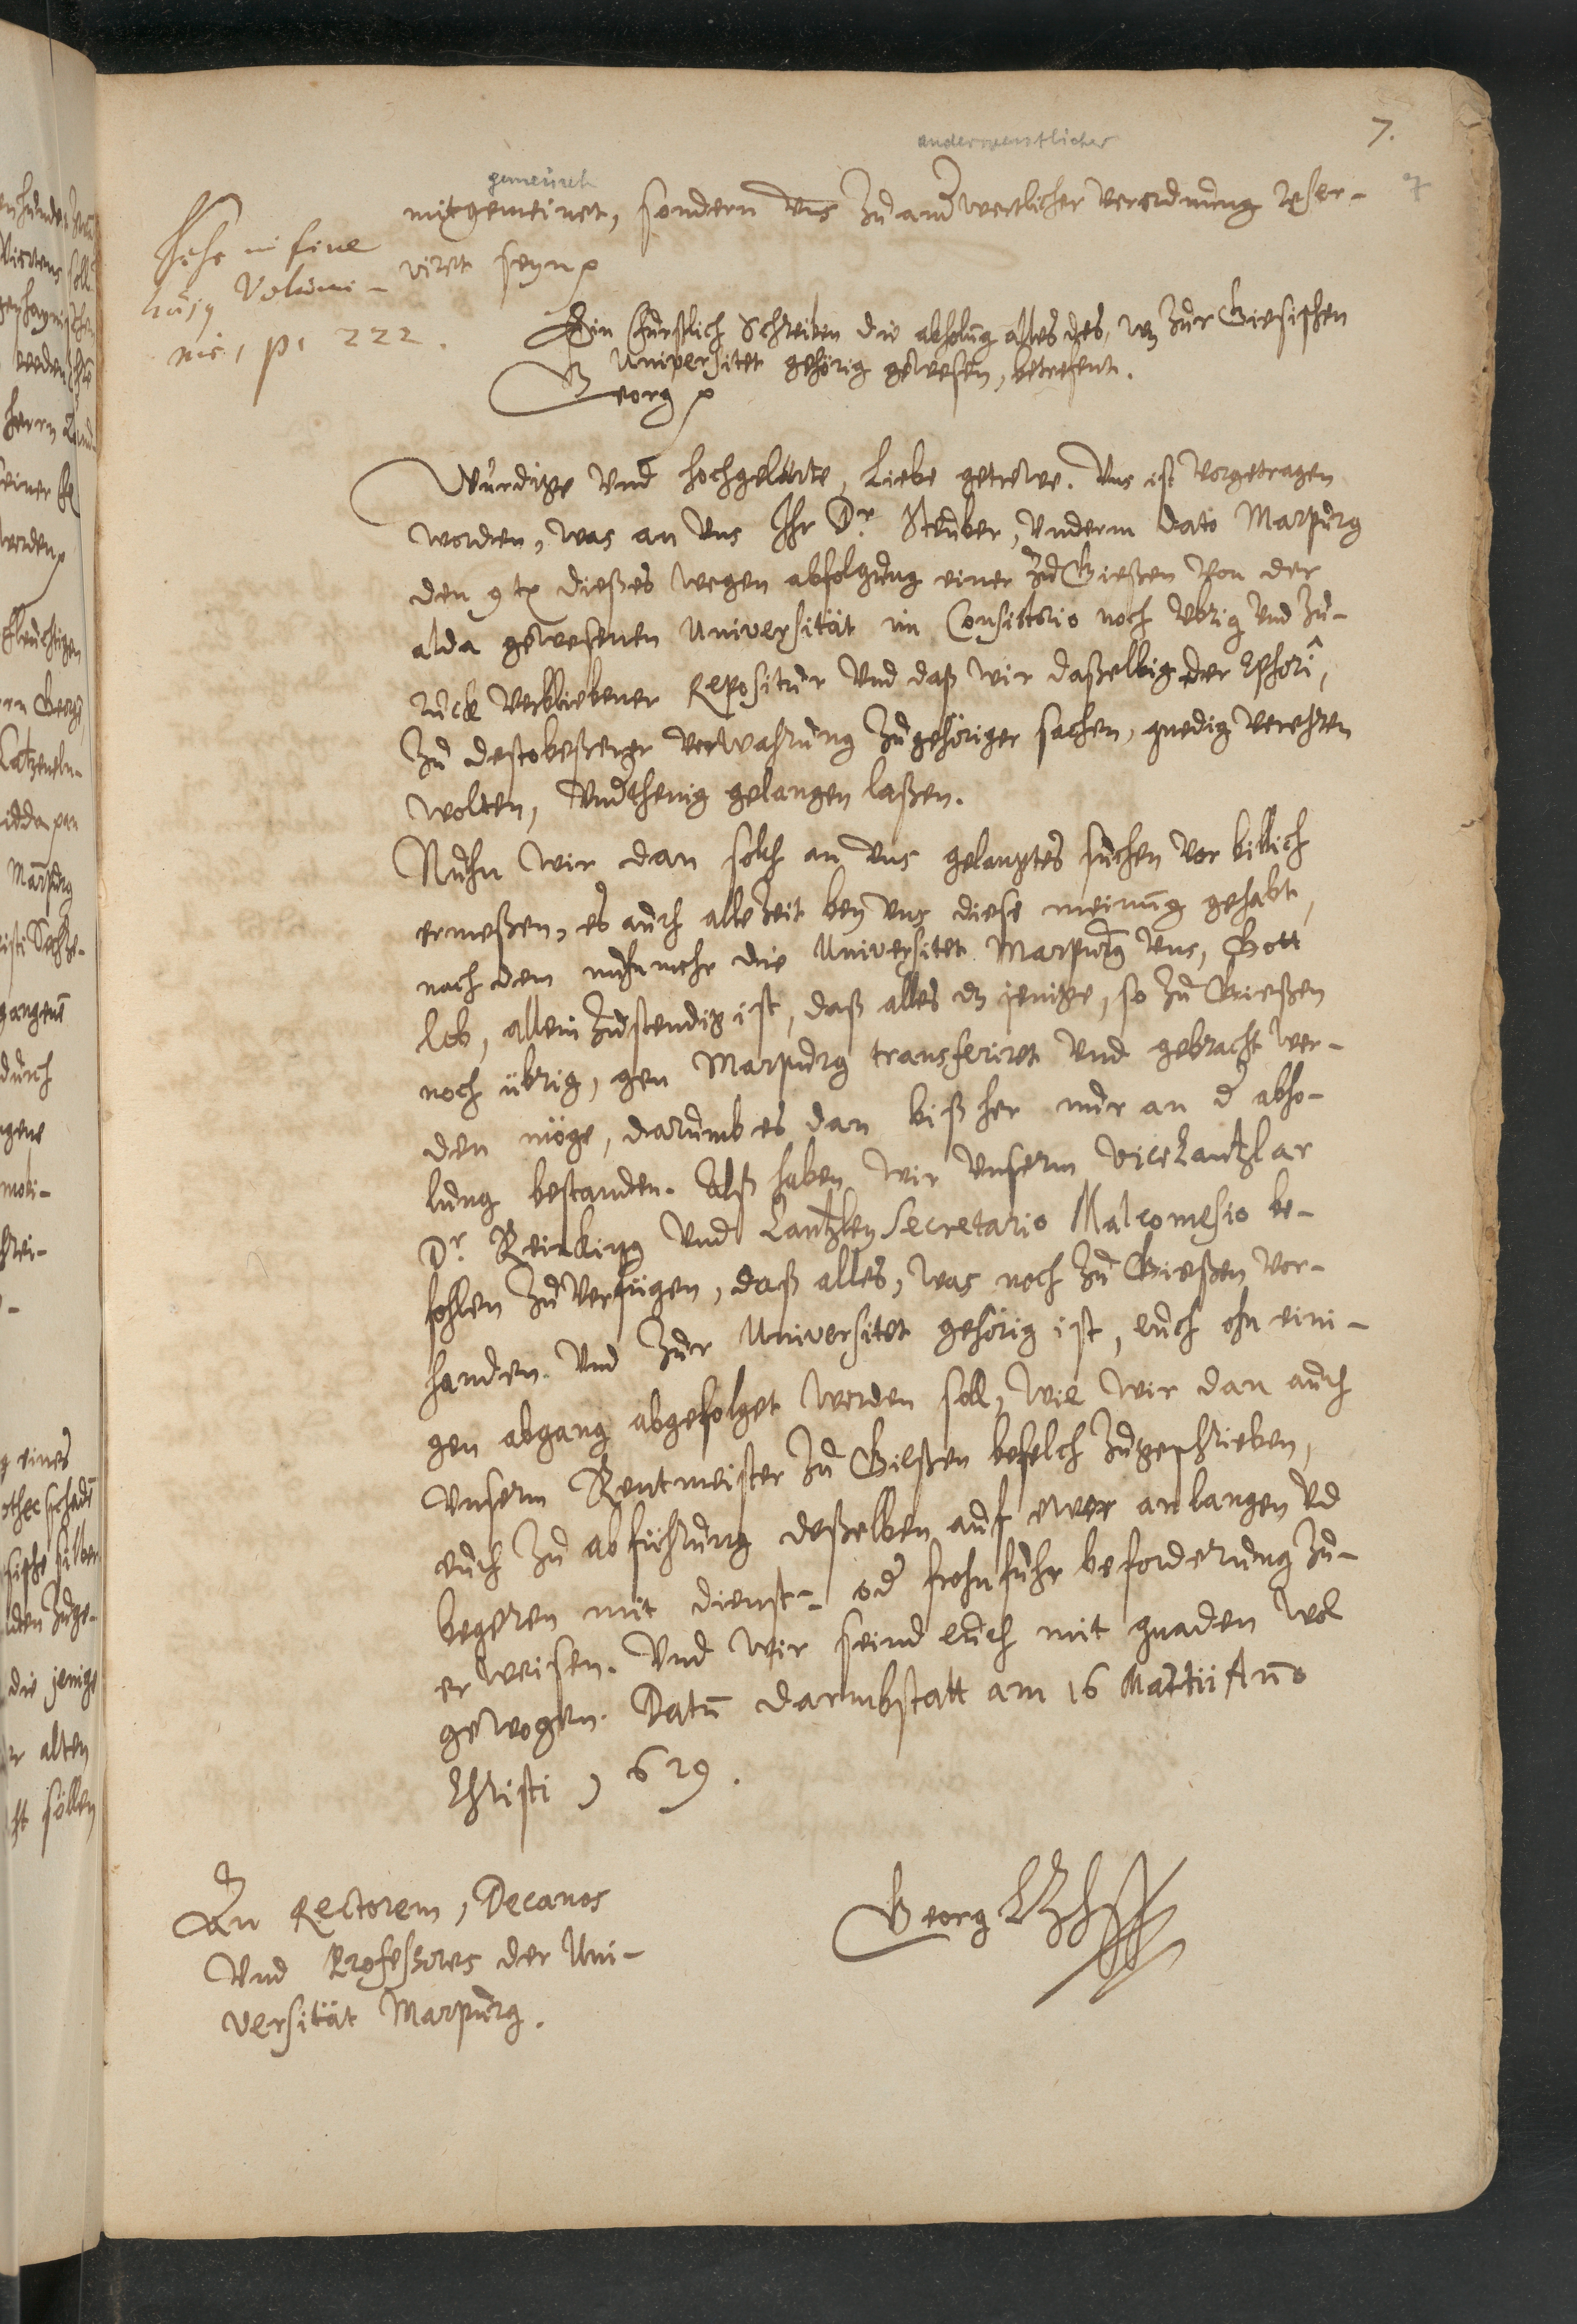 7.
7
anderwertlicher
gemeinet
mitgemeinet, sondern Uns zu anderwertlicher verordnung reser-
viret seyn p
Siehe in fine
huius Volumi-
nis, p. 222.
Ein Fürstlich Schreiben die abholung alles des, wz zur Giesischen
Universitet gehörig gewesen, betrefent.
Georg p
Würdige Und hochgelarte, Liebe getrewe. Uns ist vorgetragen
worden, was an Uns Ihr Dr. Steuber, Underm dato Marpurg
den 9 t dießes wegen abfolgung einer zu Gießen Von der
alda gewesenen Universität im Consistorio noch Ubrig Und zu-
rück Verbliebener Repositur Und daß wir daßelbig der
zu destobeßerer verwahrung zugehöriger sachen, gnedig verehren
wolten, Underthenig gelangen laßen.
Nuhn wir dan solch an Uns gelangtes suchen vor billich
ermeßen, es auch allezeit bey Uns diese meinung gehabt,
nach dem nuhnmehr die Universitet Marpurg Uns, Gott
lob, allein zustendig ist, daß alles dz jenige, so zu Gießen
noch übrig, gen Marpurg transferiret Und gebracht wer-
den möge, darumb es dan bißher nur an d abho-
lung bestanden. Alß haben wir Unserm ViceCantzlar
Dr. Reinking Und Cantzley Secretario Malcomesio be-
fohlen zu verfügen, daß alles, was noch zu Gießen vor-
handen Und zur Universitet gehörig ist, euch ohn eini-
gen abgang abgefolget werden soll, wie wir dan auch
Unserm Rentmeister zu Gießen befelch zugeschrieben,
euch zu abführung deßelben auf ewer anlangen Ud
begeren mit dienst- od frohnfuhr beforderung zu-
erweisen. Und wir seind euch mit gnaden wol
gewogen. Datu Darmbstatt am 16 Martii Ano
Christi 1629.
An Rectorem, Decanos
Und Professores der Uni-
versität Marpurg.
Georg LzHessen